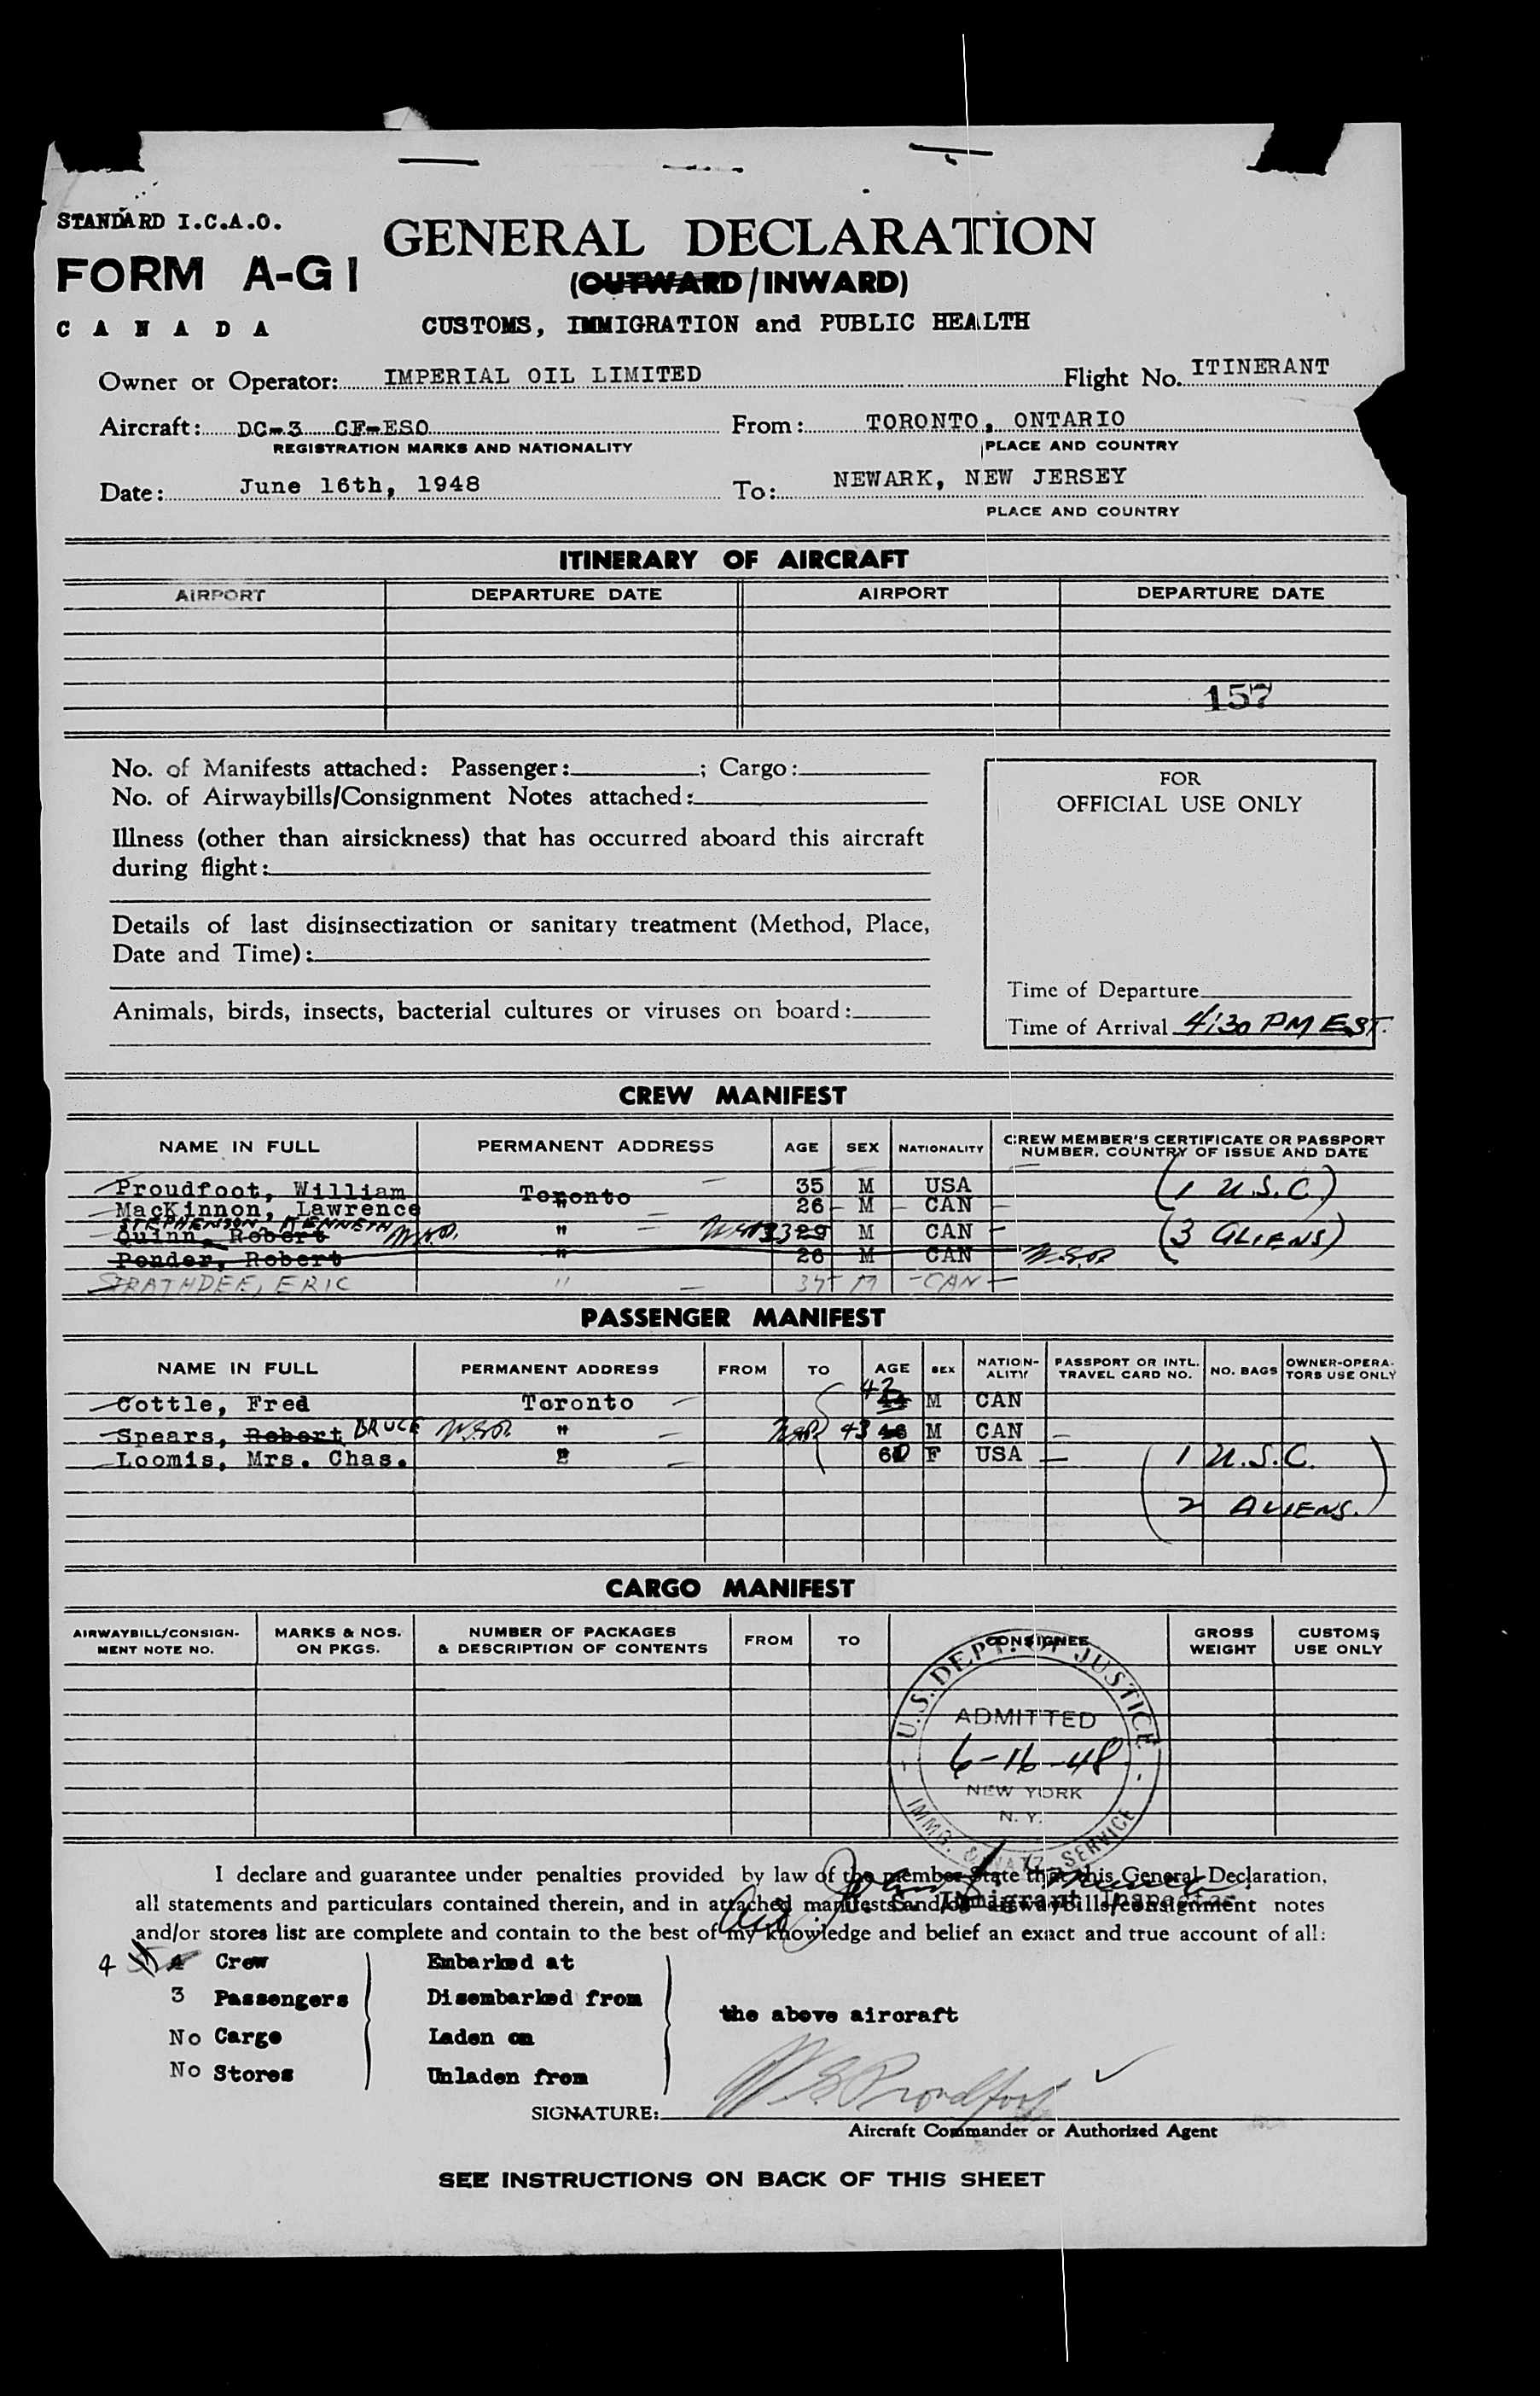 STANDARD I.C.A.O.
GENERAL DECLARATION
FORM A-G1
(OUTWARD/INWARD)
CANADA
CUSTOMS, IMMIGRATION and PUBLIC HEALTH
Owner or Operator: IMPERIAL OIL LIMITED Flight No. ITINERANT
Aircraft: DC-3 CF-ESO From: TORONTO, ONTARIO
REGISTRATION MARKS AND NATIONALITY PLACE AND COUNTRY
Date: June 16th, 1948 To: NEWARK, NEW JERSEY
PLACE AND COUNTRY
ITINERARY OF AIRCRAFT
AIRPORT DEPARTURE DATE AIRPORT DEPARTURE DATE
157
No. of Manifests attached: Passenger: ; Cargo:
No. of Airwaybills/Consignment Notes attached:
Illness (other than airsickness) that has occurred aboard this aircraft
during flight:
Details of last disinsectization or sanitary treatment (Method, Place,
Date and Time):
Animals, birds, insects, bacterial cultures or viruses on board:
FOR
OFFICIAL USE ONLY
Time of Departure
Time of Arrival 4:30 PM EST.
CREW MANIFEST
NAME IN FULL PERMANENT ADDRESS AGE SEX NATIONALITY CREW MEMBER'S CERTIFICATE OR PASSPORT
NUMBER, COUNTRY OF ISSUE AND DATE
Proudfoot, William Toronto 35 M USA (1 U.S.C.)
MacKinnon, Lawrence " 26 M CAN
STEPHENSON, KENNETH
Quinn, Robert " 33 29 M CAN (3 ALIENS)
Ponder, Robert " 26 M CAN
STRATHDEE, ERIC " M CAN
PASSENGER MANIFEST
NAME IN FULL PERMANENT ADDRESS FROM TO AGE SEX NATION-
ALITY PASSPORT OR INTL.
TRAVEL CARD NO. NO. BAGS OWNER-OPERA-
TORS USE ONLY
Cottle, Fred Toronto 42 44 M CAN
Spears, Robert BRUCE " 43 M CAN
Loomis, Mrs. Chas. " F USA 1 U.S.C.
2 ALIENS.
CARGO MANIFEST
AIRWAYBILL/CONSIGN-
MENT NOTE NO. MARKS & NOS.
ON PKGS. NUMBER OF PACKAGES
& DESCRIPTION OF CONTENTS FROM TO CONSIGNEE GROSS
WEIGHT CUSTOMS
USE ONLY
U.S. DEPT. OF JUSTICE
ADMITTED
6-16-48
NEW YORK
N. Y.
IMMG. & NATZ. SERVICE
I declare and guarantee under penalties provided by law of the member State that this General Declaration,
all statements and particulars contained therein, and in attached manifests and/or airwaybills/consignment notes
Immigrant Inspector
and/or stores list are complete and contain to the best of my knowledge and belief an exact and true account of all:
4 Crew Embarked at
3 Passengers Disembarked from
the above aircraft
No Cargo Laden on
No Stores Unladen from
SIGNATURE: W S Proudfoot
Aircraft Commander or Authorized Agent
SEE INSTRUCTIONS ON BACK OF THIS SHEET